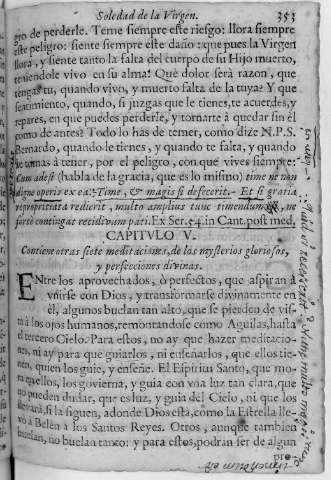 Soledad de la Virgen. 353
gro de perderle. Teme siempre este riesgo: llora siempre
este peligro: siente siempre este daño: que pues la Virgen
llora, y siente tanto la falta del cuerpo de su Hijo muerto,
teniendole vivo en su alma! Què dolor serà razon, que
tengas tu, quando vivo, y muerto falta de la tuya? Y que
sentimiento, quando, si juzgas que le tienes, te acuerdes, y
repares, en que puedes perderle, y tornarte à quedar sin èl
como de antes? Todo lo hàs de temer, como dize N.P.S.
Bernardo, quando le tienes, y quando te falta, y quando
le tornas à tener, por el peligro, con que vives siempre:
Cum adest (habla de la gracia, que es lo mismo) time ne non
digne opereris ex ea: Time, & magis si defecerit. Et si gratia
repropitiata redierit, multo amplius tunc timendum, ne
forte contingat recidivum pati. Ex Ser. 54. in Cant. post med.
CAPITULO V.
Contiene otras siete meditaciones, de los mysterios gloriosos,
y perfecciones divinas.
ENtre los aprovechados, ò perfectos, que aspiran à
unirse con Dios, y transformarse divinamente en
èl, algunos buelan tan alto, que se pierden de vis-
ta à los ojos humanos, remontandose como Aguilas, hasta
el tercero Cielo. Para estos, no ay que hazer meditacio-
nes, ni ay para que guiarlos, ni enseñarlos, que ellos tie-
nen, quien los guie, y enseñe. El Espiritu Santo, que mo-
ra en ellos, los govierna, y guia con una luz tan clara, que
no pueden dudar, que es luz, y guia del Cielo, ni que los
llevarà, si la siguen, adonde Dios està, como la Estrella lle-
vò à Belèn à los Santos Reyes. Otros, aunque tambien
buelan, no buelan tanto: y para estos, podràn ser de algun
pro-
timendum est